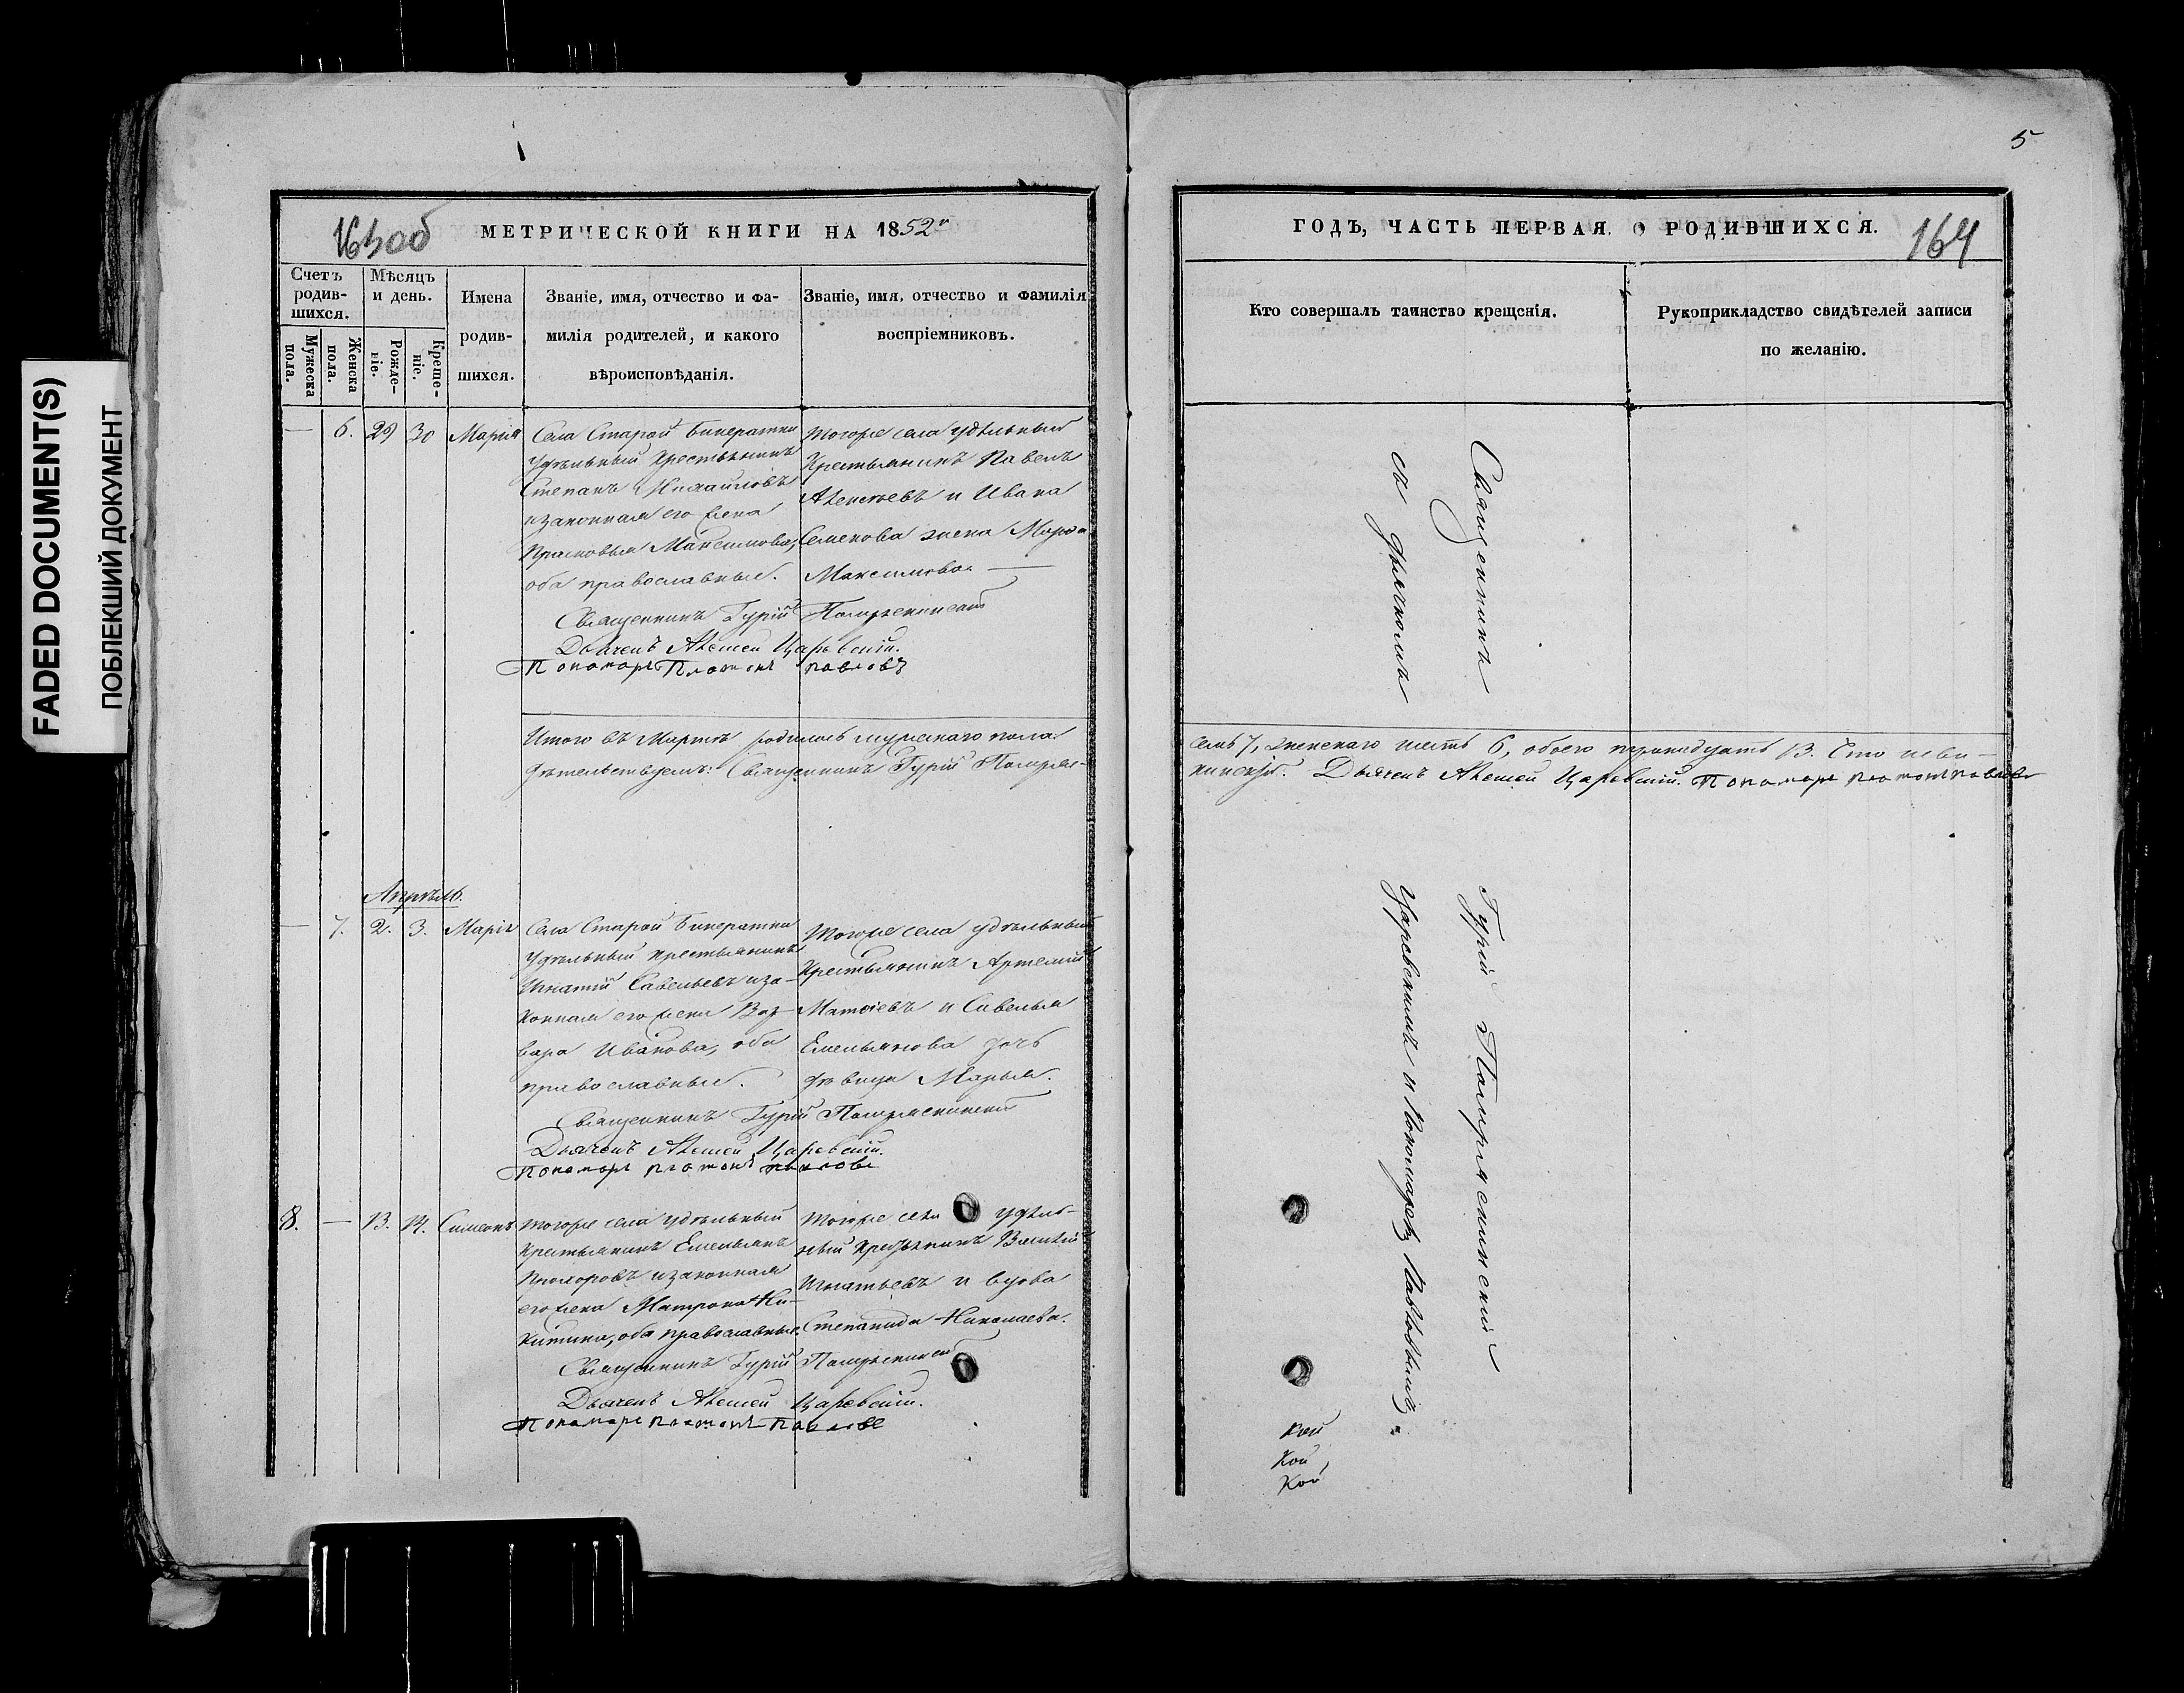 FADED DOCUMENT(S)
ПОБЛЕКШИЙ ДОКУМЕНТ
163об
МЕТРИЧЕСКОЙ КНИГИ НА 1852й
Счетъ
родив-
шихся.
Мужеска
пола.
Женска
пола.
Мѣсяцъ
и день.
Рожде-
ніе.
Креще-
ніе.
Имена
родив-
шихся.
Званіе, имя, отчество и фа-
милія родителей, и какого
вѣроисповѣданія.
Званіе, имя, отчество и фамилія
воспріемниковъ.
— 6. 29 30 Марія
Села Старой Бинератки
Удѣльный крестьянинъ
Степанъ Михайловъ
и законная его жена
Прасковья Максимова,
оба православные.
Тогоже села удѣльный
Крестьянинъ Павелъ
Алексѣевъ и Ивана
Семенова жена
Максимова —
Священникъ Гурій
Дьячекъ Алексѣй Царевскій.
Пономарь Платонъ Павловъ
Итого въ Мартѣ родилось мужескаго пола
дѣтельствуемъ: Священникъ Гурій
Апрѣль.
— 7. 2. 3. Марія
Села Старой Бинератки
Удѣльный крестьянинъ
Игнатій Савельевъ и за-
конная его жена Вар-
вара Иванова, оба
православные.
Тогоже села удѣльный
Крестьянинъ Артемій
и Савелья
Емельянова дочь
дѣвица Марья.
Священникъ Гурій
Дьячекъ Алексѣй Царевскій.
Пономарь Платонъ Павловъ
8. — 13. 14. Симеонъ
Тогоже села удѣльный
Крестьянинъ Емельянъ
Прохоровъ и законная
его жена Матрона Ни-
китина, оба православные.
Тогоже села удѣль-
ный крестьянинъ Василій
Игнатьевъ и вдова
Степанида Николаева.
Священникъ Гурій
Дьячекъ Алексѣй Царевскій.
Пономарь Платонъ Павловъ
5
ГОДЪ, ЧАСТЬ ПЕРВАЯ. О РОДИВШИХСЯ.
164
Кто совершалъ таинство крещенія.
Рукоприкладство свидѣтелей записи
по желанію.
Священникъ Гурій
съ дьячкомъ Царевскимъ и Пономаремъ Павловымъ.
семь 7, женскаго шесть 6, обоего тринадцать 13. Въ томъ
Дьячекъ Алексѣй Царевскій. Пономарь Платонъ Павловъ
кой
кой,
кой